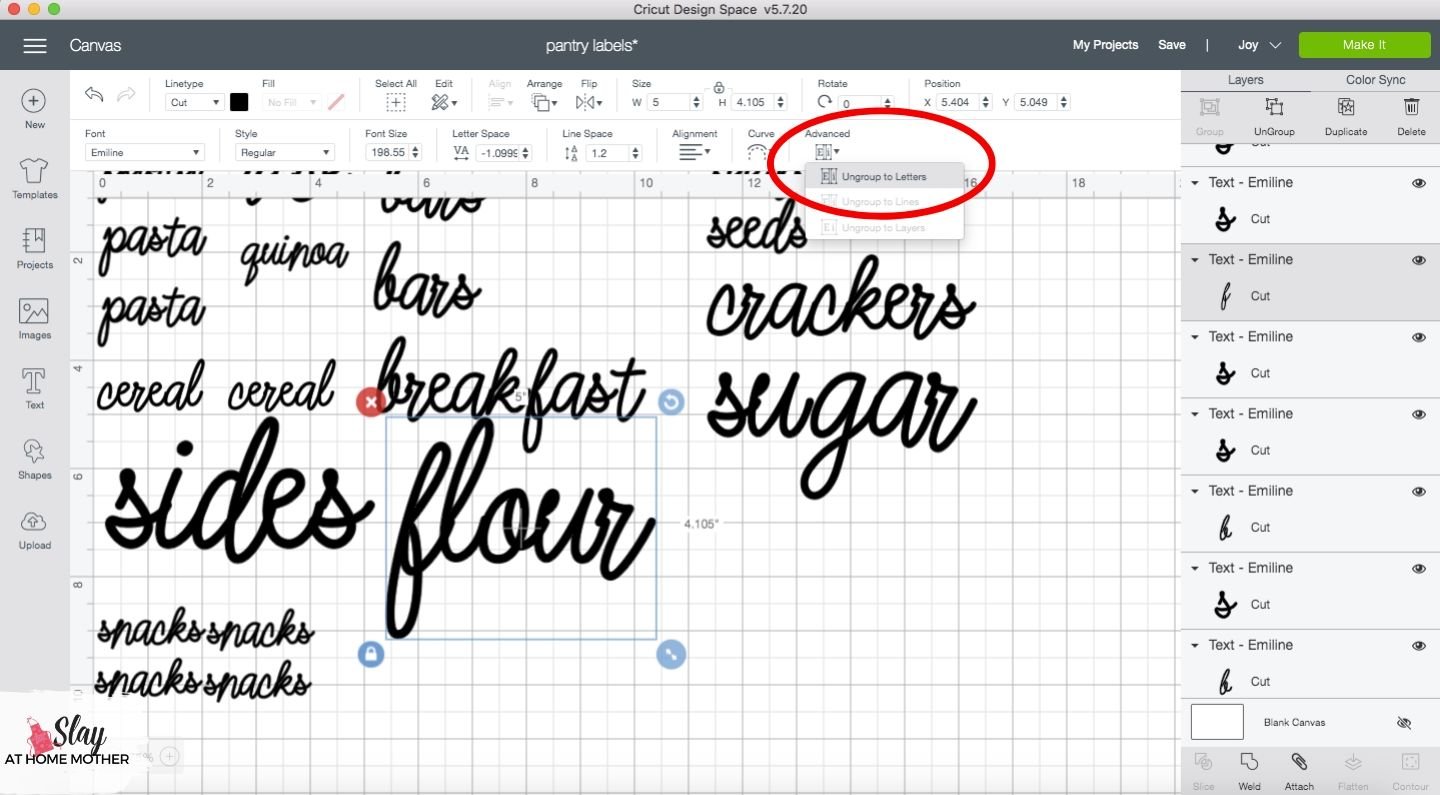 Cricut Design Space v5.7.20
Canvas
pantry labels*
My Projects Save | Joy Make It
Linetype Fill Select All Edit Align Arrange Flip Size Rotate Position
Cut No Fill W 5 H 4.105 0 X 5.404 Y 5.049
Font Style Font Size Letter Space Line Space Alignment Curve Advanced
Emiline Regular 198.55 VA -1.0999 1.2
Ungroup to Letters
Ungroup to Lines
Ungroup to Layers
New
Templates
Projects
Images
Text
Shapes
Upload
0 2 4 6 8 10 12 16 18
2
4
6
8
10
pasta quinoa bars
bars
pasta
cereal cereal breakfast
sides flour
snacks snacks
snacks snacks
seeds
crackers
sugar
5"
4.105"
Layers Color Sync
Group UnGroup Duplicate Delete
Text - Emiline
Cut
Text - Emiline
Cut
Text - Emiline
Cut
Text - Emiline
Cut
Text - Emiline
Cut
Text - Emiline
Cut
Text - Emiline
Cut
Blank Canvas
Slice Weld Attach Flatten Contour
Slay
AT HOME MOTHER
%